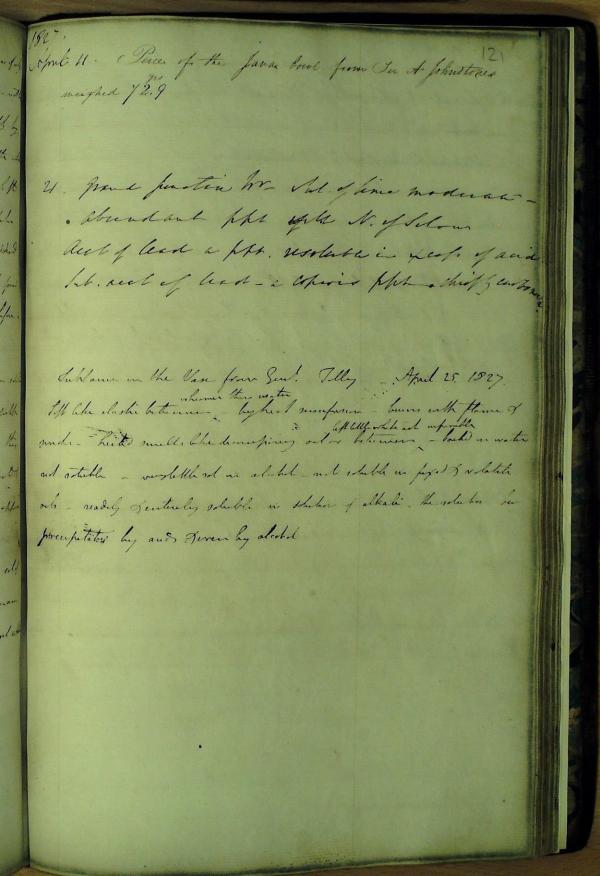 1827
121
April 11. Piece of the Javan bowl from Sir A Johnstone
weighed 72.9 grs
21. Grand Junction Wr - Sul of lime moderate -
abundant ppt with N. of Silver
Acet of lead a ppt. resoluble in excess of acid
Sub. acet of lead - a copious ppt - chiefly carbonate
Substance in the Vase from Genl. Tilly - April 25. 1827
heavier than water
like elastic bitumen - by heat - burns with flame &
left little white ash
smoke - Heated smells like decomposing bitumen - boiled in water
not soluble - not in alcohol - not soluble in fixed & volatile
oils - readily & entirely soluble in solution of alkali - the solution
precipitated by acids & even by alcohol